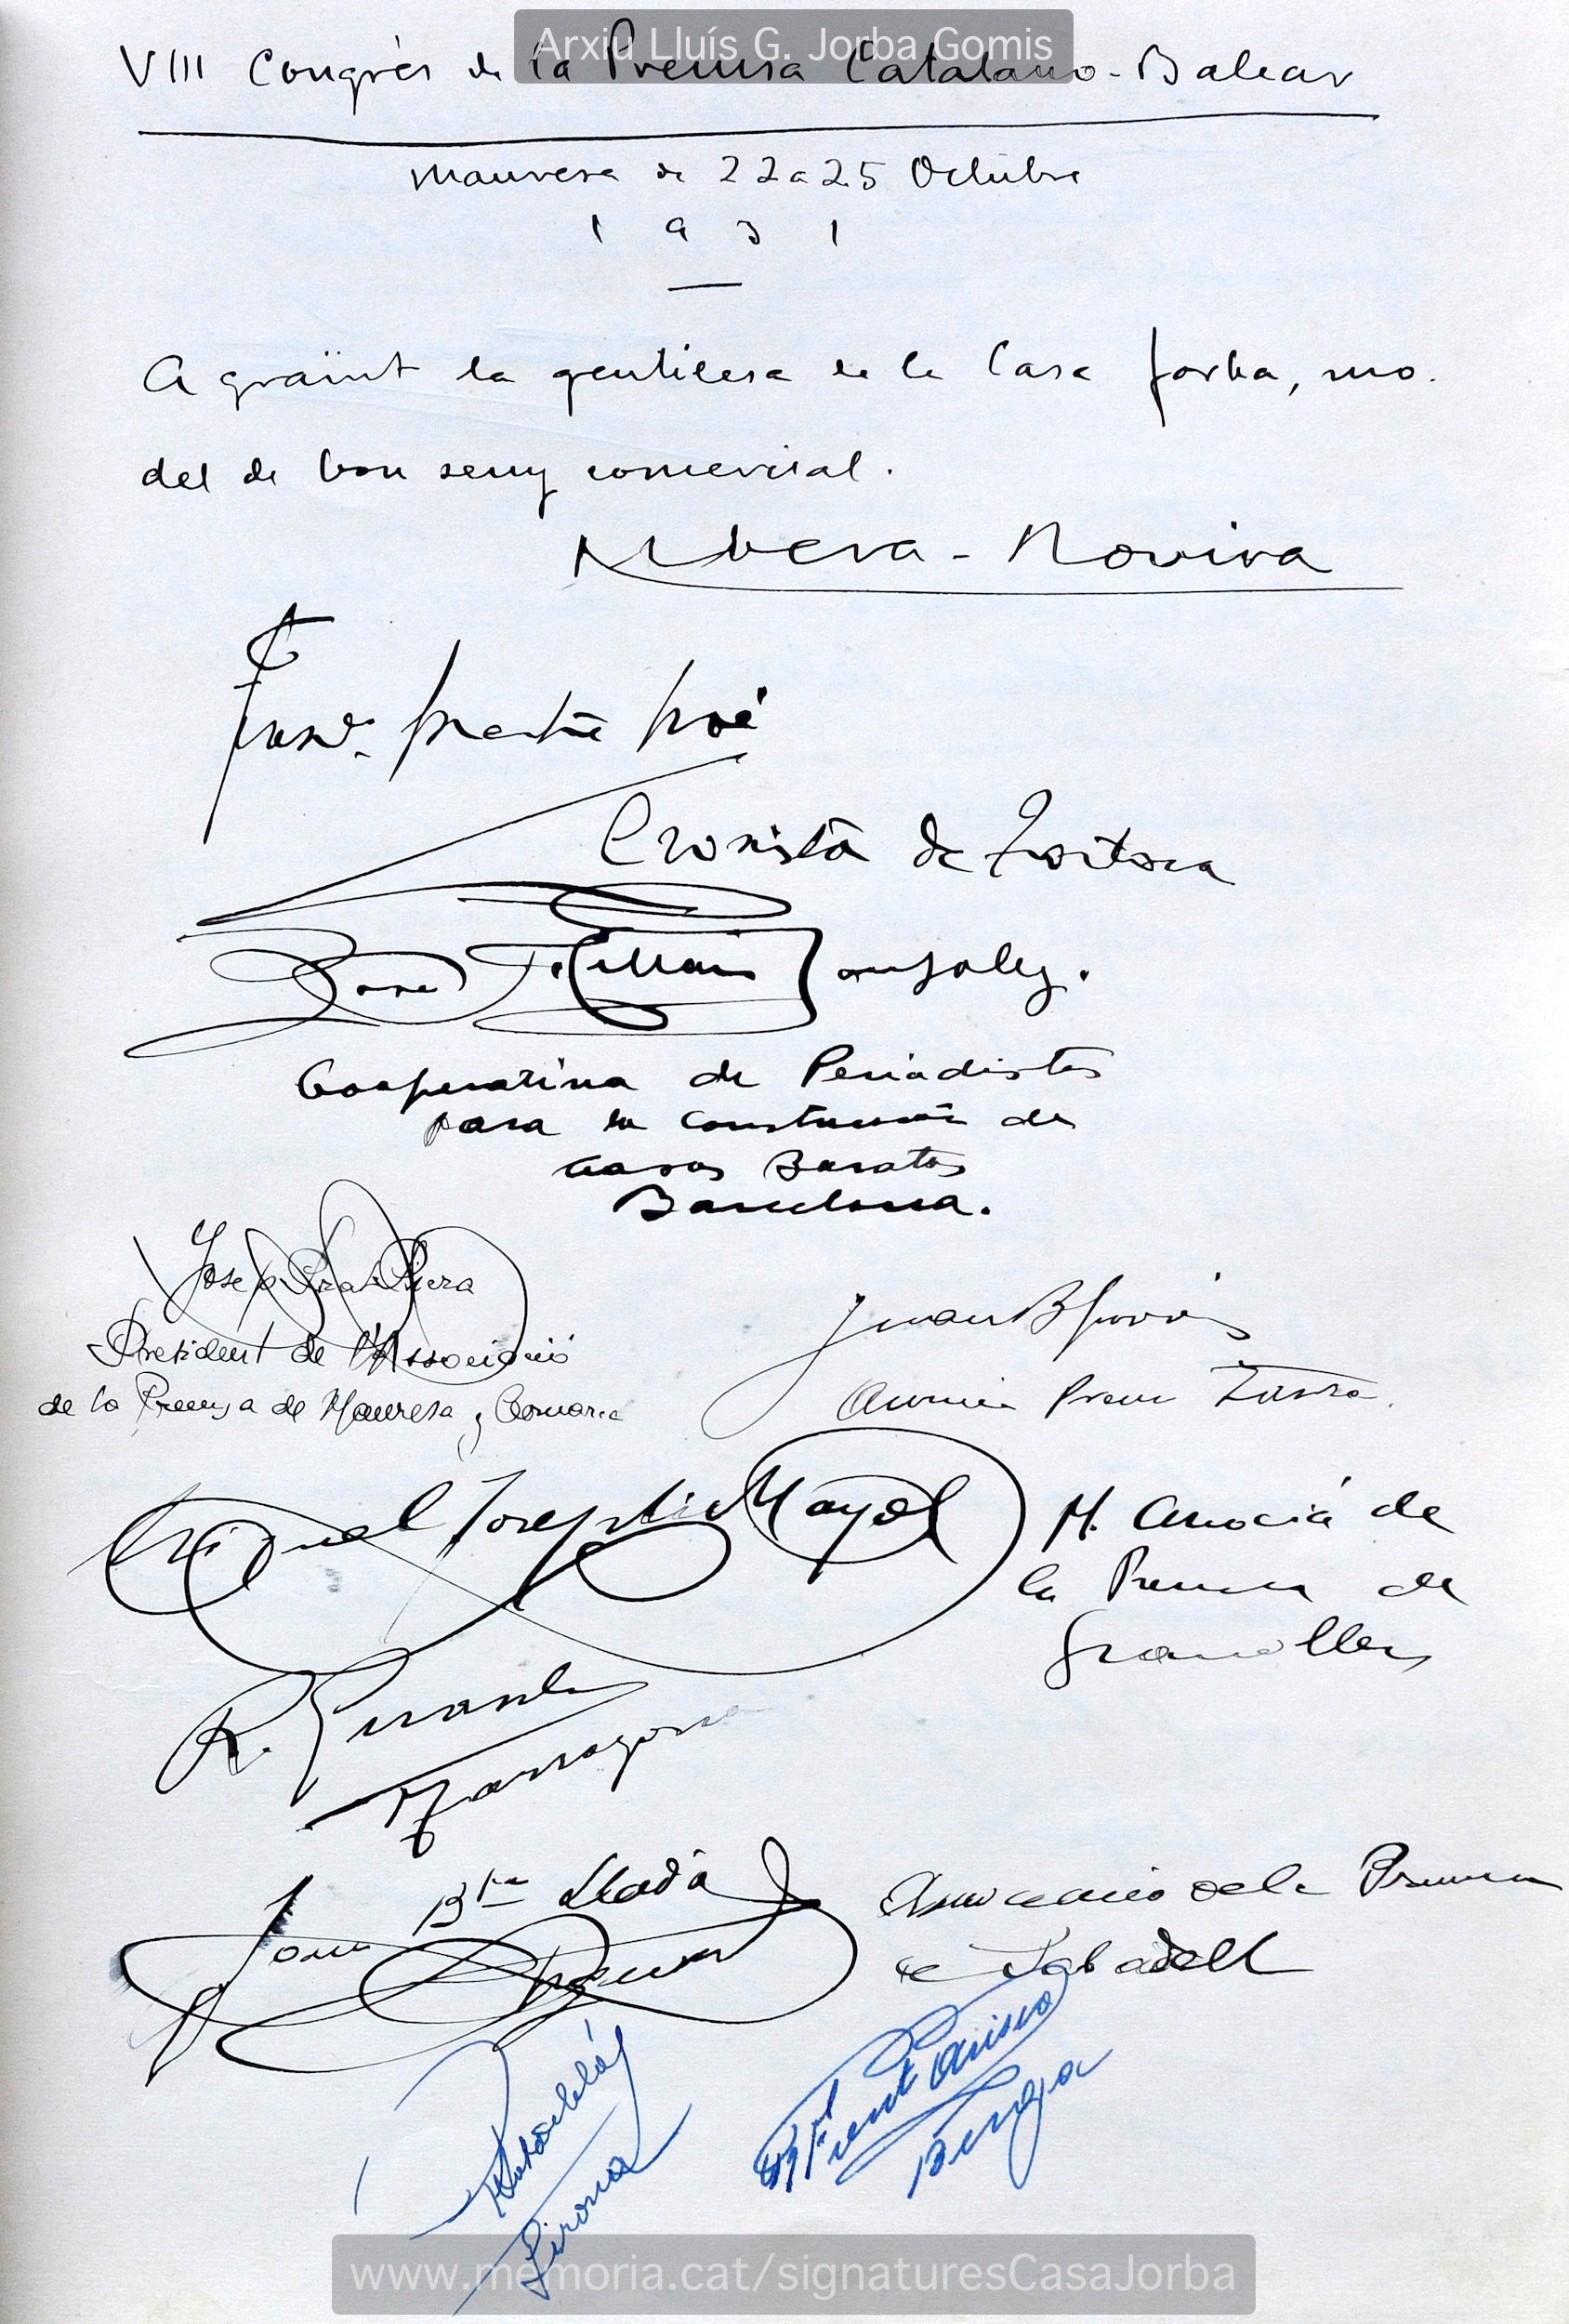 Arxiu Lluís G. Jorba Gomis
VIII Congrés de la Premsa Catalano-Balear
Manresa de 22 a 25 Octubre
1931
Agraïint la gentilesa de la Casa Jorba, mo-
del de bon seny comercial.
Rovira
Cronista de Tortosa
José
Gonzalez.
Cooperativa de Periodistas
para la construcción de
Casas Baratas
Barcelona.
Josep Prat Piera
President de l'Associació
de la Premsa de Manresa y Comarca
Juan B
Miquel Joseph Mayol
H. Associá de
la Premsa de
Granollers
R.
Tarragona
Joan Bta Lladó
Associació de la Premsa
de Sabadell
Girona
Berga
www.memoria.cat/signaturesCasaJorba